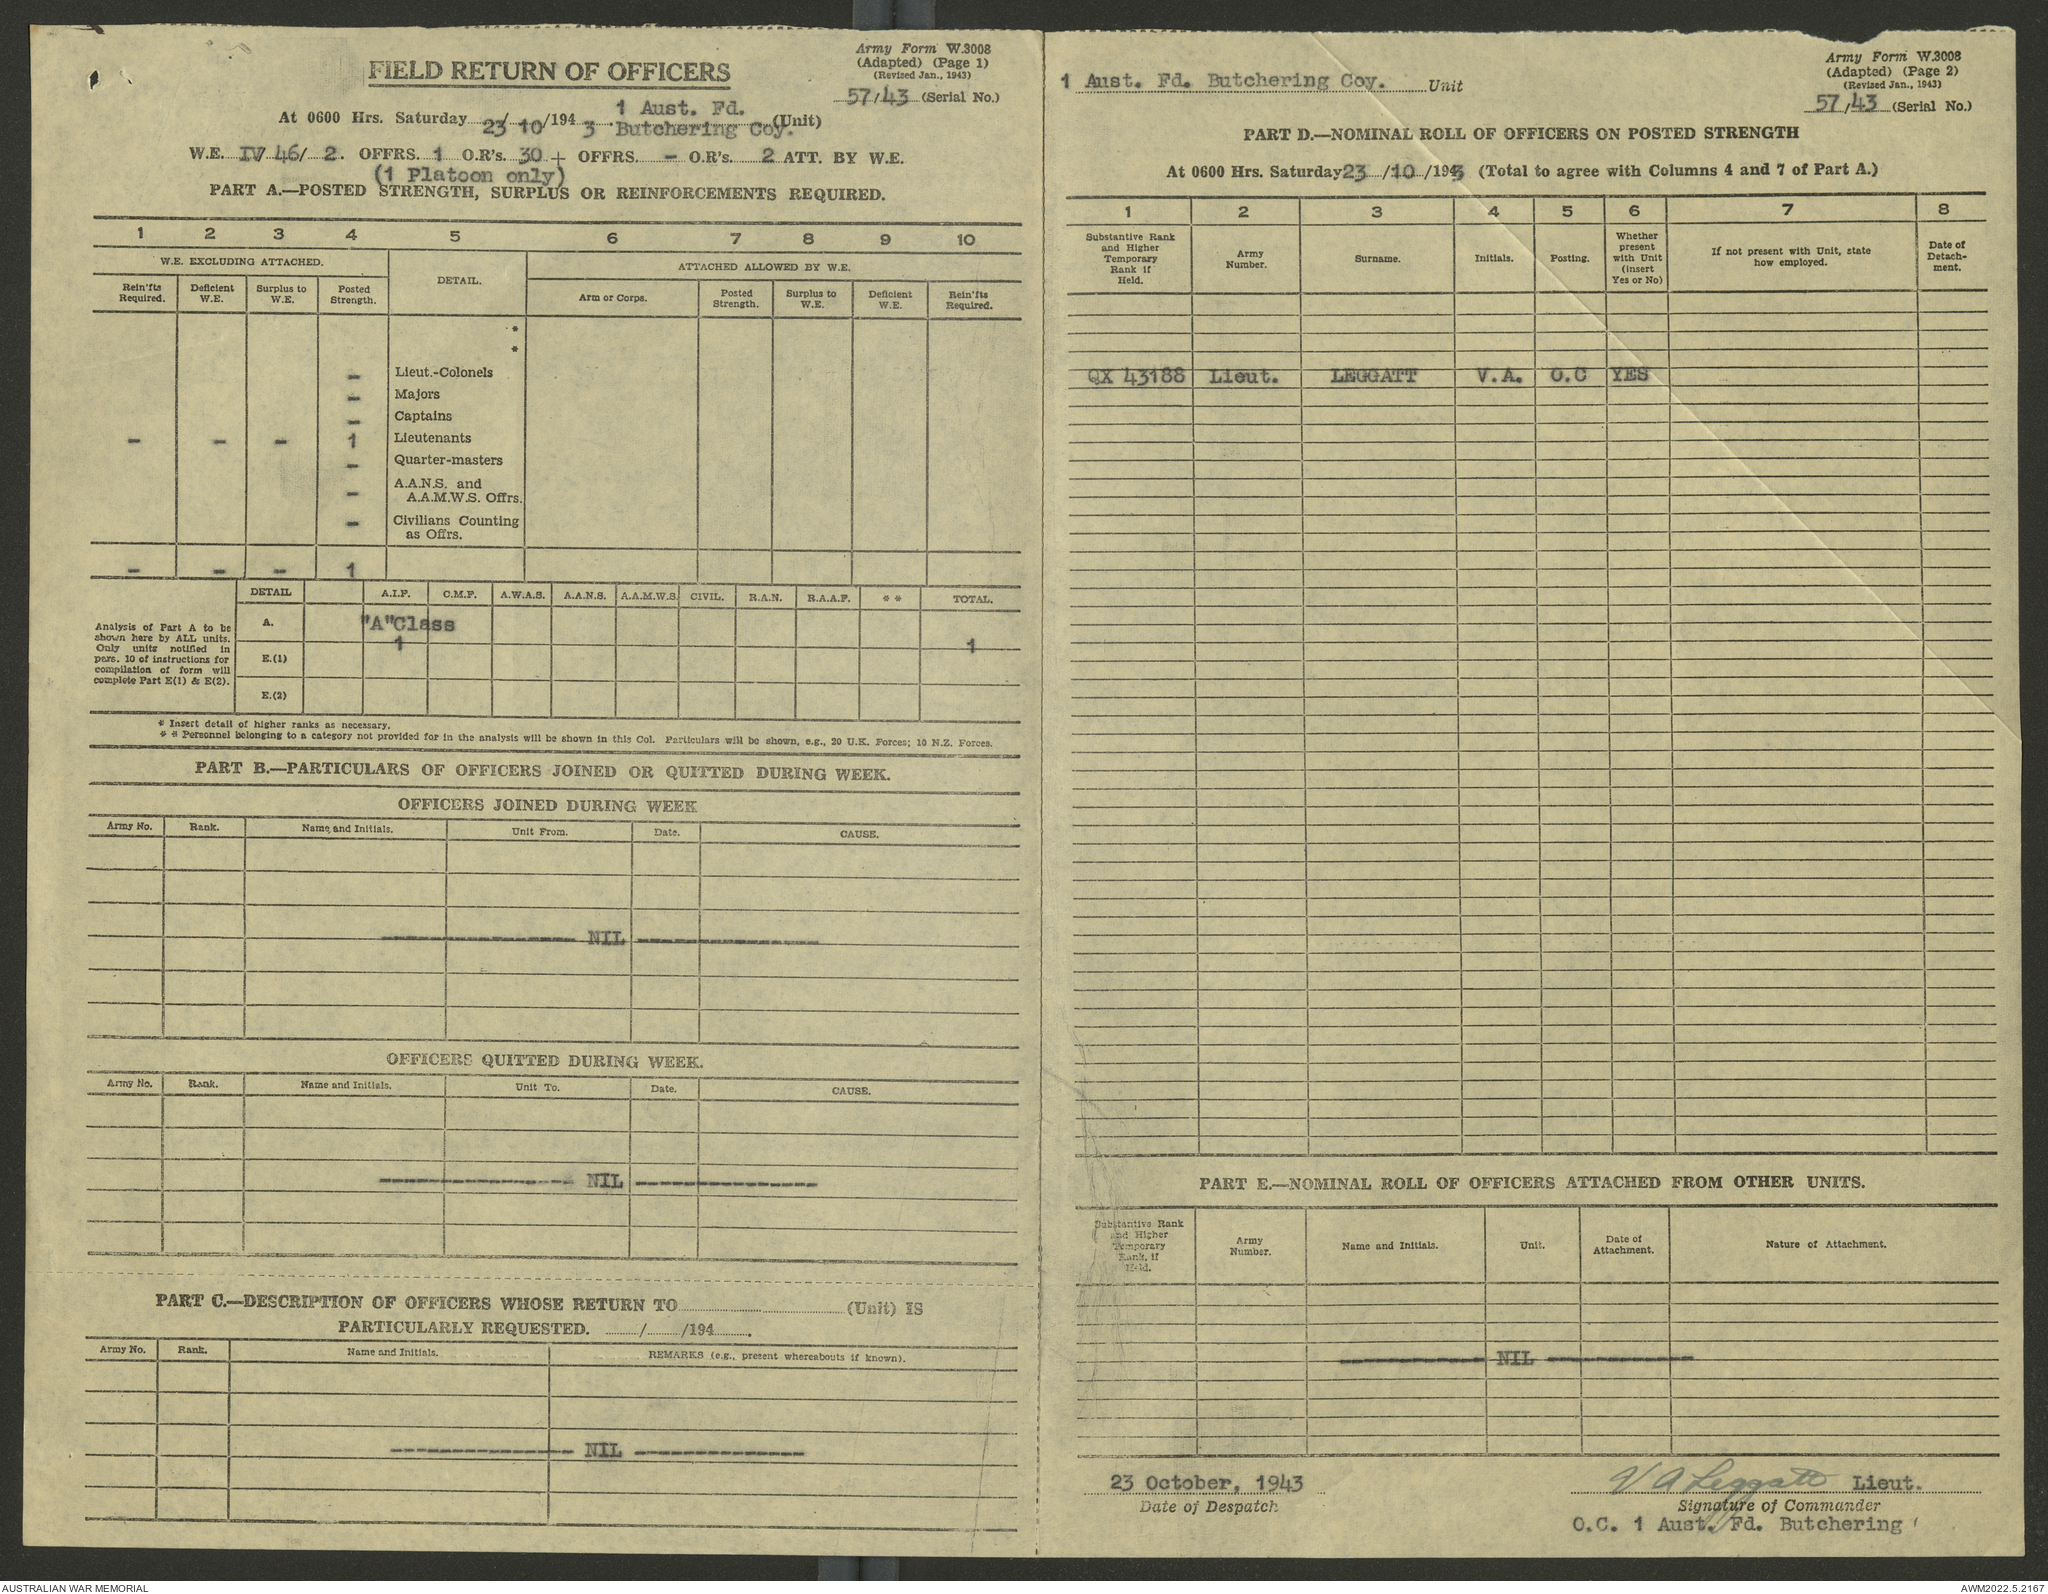 Army Form W.3008
(Adapted) (Page 1)
(Revised Jan., 1943)
FIELD RETURN OF OFFICERS
57/43 (Serial No.)
1 Aust. Fd.
At 0600 Hrs. Saturday 23/10/1943 Butchering Coy. (Unit)
W.E. IV 46/ 2. OFFRS. 1 O.R's. 30 + OFFRS. - O.R's. 2 ATT. BY W.E.
(1 Platoon only)
PART A.—POSTED STRENGTH, SURPLUS OR REINFORCEMENTS REQUIRED.
1 2 3 4 5 6 7 8 9 10
W.E. EXCLUDING ATTACHED. DETAIL. ATTACHED ALLOWED BY W.E.
Rein'fts Required. Deficient W.E. Surplus to W.E. Posted Strength. Arm or Corps. Posted Strength. Surplus to W.E. Deficient W.E. Rein'fts Required.
*
*
- Lieut.-Colonels
- Majors
- Captains
- - - 1 Lieutenants
- Quarter-masters
- A.A.N.S. and A.A.M.W.S. Offrs.
- Civilians Counting as Offrs.
- - - 1
DETAIL A.I.F. C.M.F. A.W.A.S. A.A.N.S. A.A.M.W.S. CIVIL. R.A.N. R.A.A.F. * * TOTAL.
Analysis of Part A to be
shown here by ALL units.
Only units notified in
para. 10 of instructions for
compilation of form will
complete Part E(1) & E(2).
A. "A"Class
1 1
E.(1)
E.(2)
* Insert detail of higher ranks as necessary.
* * Personnel belonging to a category not provided for in the analysis will be shown in this Col. Particulars will be shown, e.g., 20 U.K. Forces; 10 N.Z. Forces.
PART B.—PARTICULARS OF OFFICERS JOINED OR QUITTED DURING WEEK.
OFFICERS JOINED DURING WEEK
Army No. Rank. Name and Initials. Unit From. Date. CAUSE.
---------------- NIL ----------------
OFFICERS QUITTED DURING WEEK.
Army No. Rank. Name and Initials. Unit To. Date. CAUSE.
---------------- NIL ----------------
PART C.—DESCRIPTION OF OFFICERS WHOSE RETURN TO (Unit) IS
PARTICULARLY REQUESTED. / /194 .
Army No. Rank. Name and Initials. REMARKS (e.g., present whereabouts if known).
---------------- NIL ----------------
Army Form W.3008
(Adapted) (Page 2)
(Revised Jan., 1943)
1 Aust. Fd. Butchering Coy. Unit
57/43 (Serial No.)
PART D.—NOMINAL ROLL OF OFFICERS ON POSTED STRENGTH
At 0600 Hrs. Saturday 23/10/1943 (Total to agree with Columns 4 and 7 of Part A.)
1 2 3 4 5 6 7 8
Substantive Rank and Higher Temporary Rank if Held. Army Number. Surname. Initials. Posting. Whether present with Unit (insert Yes or No) If not present with Unit, state how employed. Date of Detach-ment.
QX 43188 Lieut. LEGGATT V.A. O.C YES
PART E.—NOMINAL ROLL OF OFFICERS ATTACHED FROM OTHER UNITS.
Substantive Rank and Higher Temporary Rank, if Held. Army Number. Name and Initials. Unit. Date of Attachment. Nature of Attachment.
------------- NIL -------------
23 October, 1943
Date of Despatch
V A Leggatt Lieut.
Signature of Commander
O.C. 1 Aust. Fd. Butchering
AUSTRALIAN WAR MEMORIAL
AWM2022.5.2167